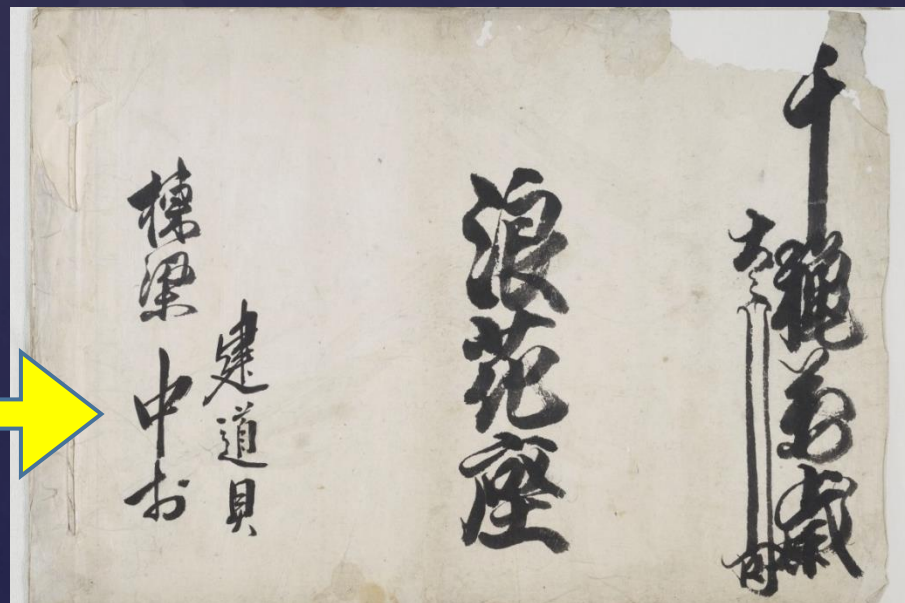 千穐萬歳
大入叶
浪花座
建道具
棟梁 中村